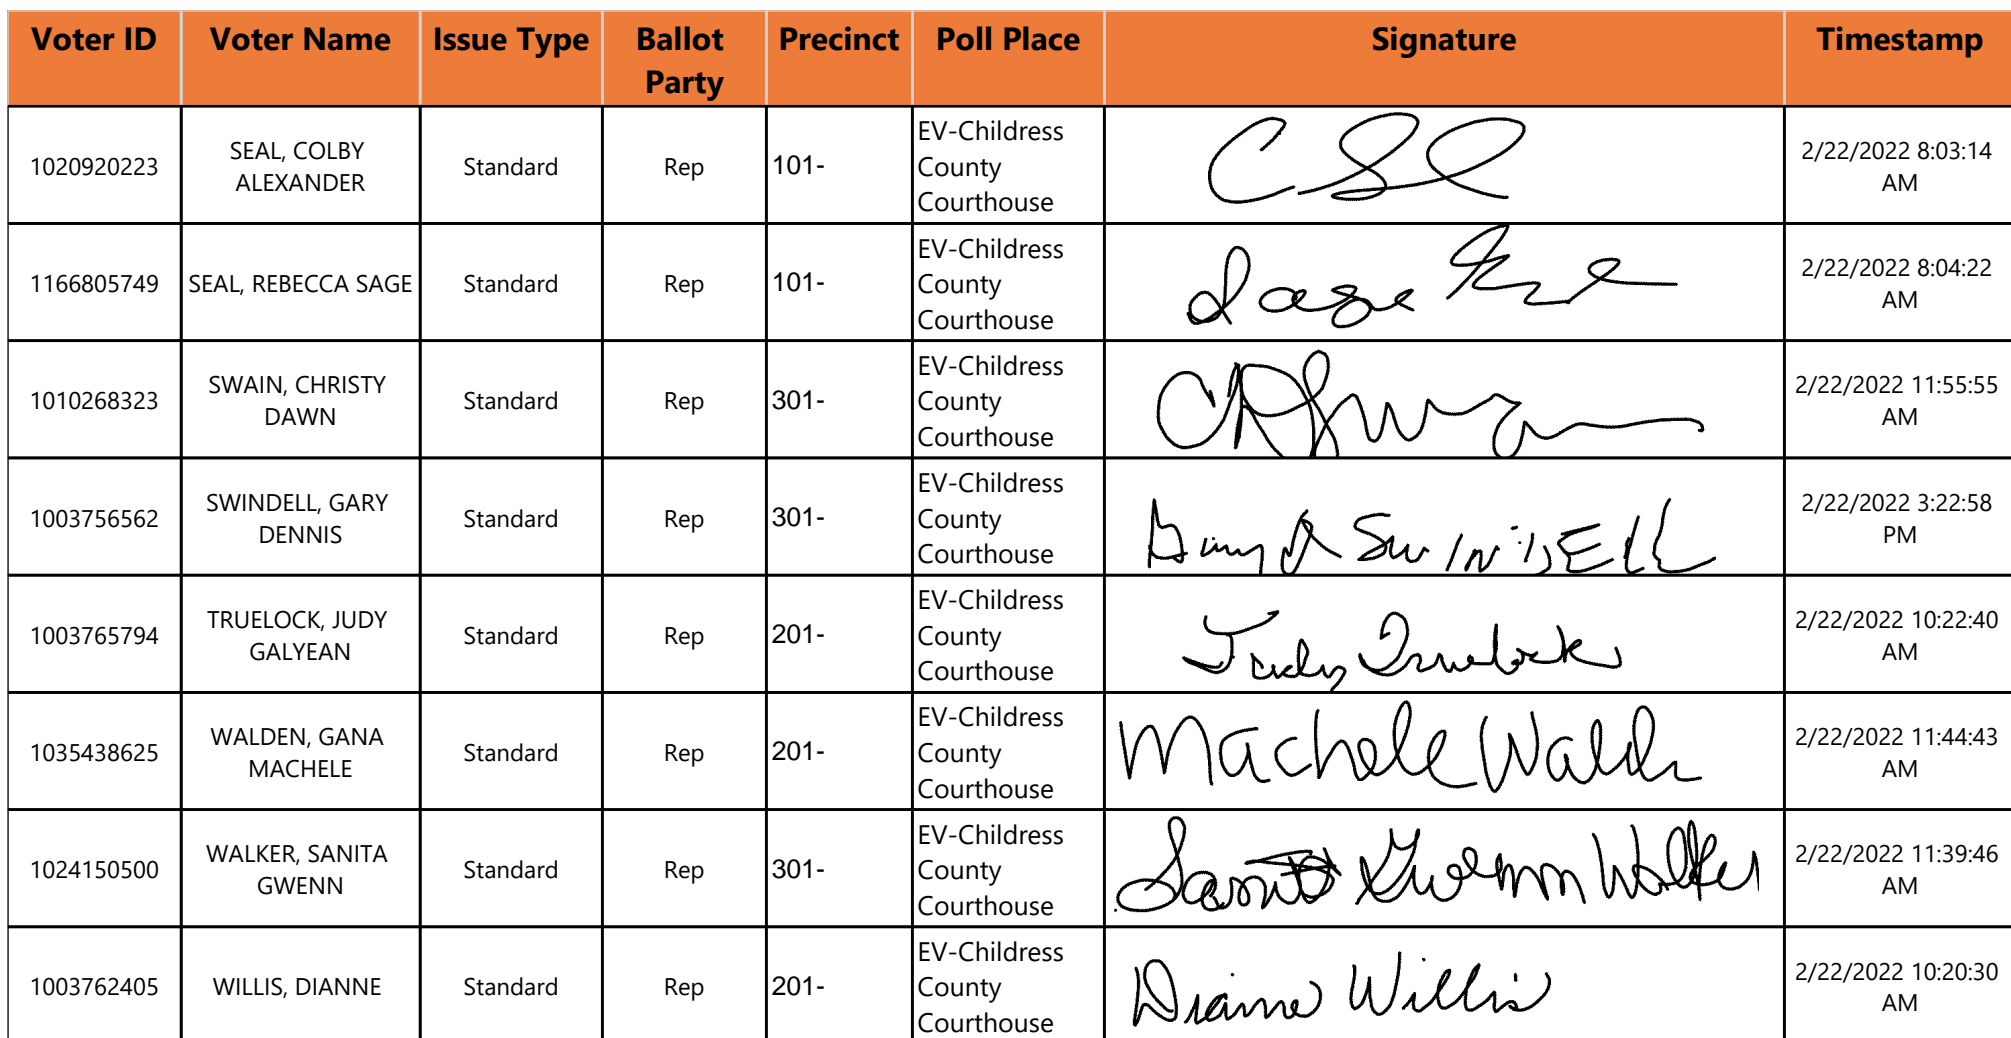 Voter ID Voter Name Issue Type Ballot Precinct Poll Place Signature Timestamp
Party
1020920223 SEAL, COLBY ALEXANDER Standard Rep 101- EV-Childress County Courthouse 2/22/2022 8:03:14 AM
1166805749 SEAL, REBECCA SAGE Standard Rep 101- EV-Childress County Courthouse Sage 2/22/2022 8:04:22 AM
1010268323 SWAIN, CHRISTY DAWN Standard Rep 301- EV-Childress County Courthouse 2/22/2022 11:55:55 AM
1003756562 SWINDELL, GARY DENNIS Standard Rep 301- EV-Childress County Courthouse Gary D SWINDELL 2/22/2022 3:22:58 PM
1003765794 TRUELOCK, JUDY GALYEAN Standard Rep 201- EV-Childress County Courthouse Judy Truelock 2/22/2022 10:22:40 AM
1035438625 WALDEN, GANA MACHELE Standard Rep 201- EV-Childress County Courthouse Machele Walden 2/22/2022 11:44:43 AM
1024150500 WALKER, SANITA GWENN Standard Rep 301- EV-Childress County Courthouse Sanita Gwenn Walker 2/22/2022 11:39:46 AM
1003762405 WILLIS, DIANNE Standard Rep 201- EV-Childress County Courthouse Dianne Willis 2/22/2022 10:20:30 AM